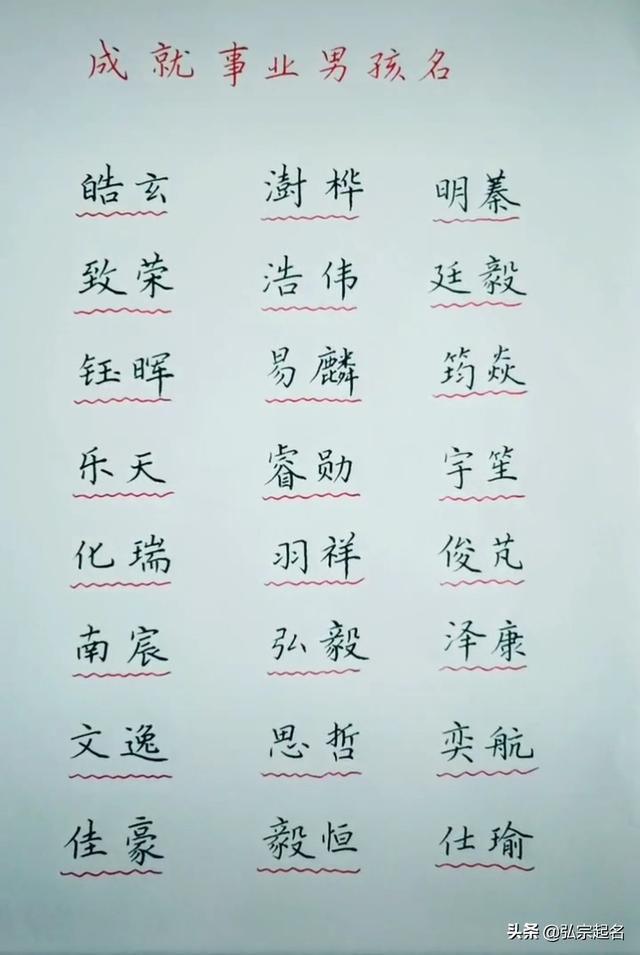 成就事业男孩名
皓玄 澍桦 明蓁
致荣 浩伟 廷毅
钰晖 易麟 筠焱
乐天 睿勋 宇笙
化瑞 羽祥 俊芃
南宸 弘毅 泽康
文逸 思哲 奕航
佳豪 毅恒 仕瑜
头条 @弘宗起名